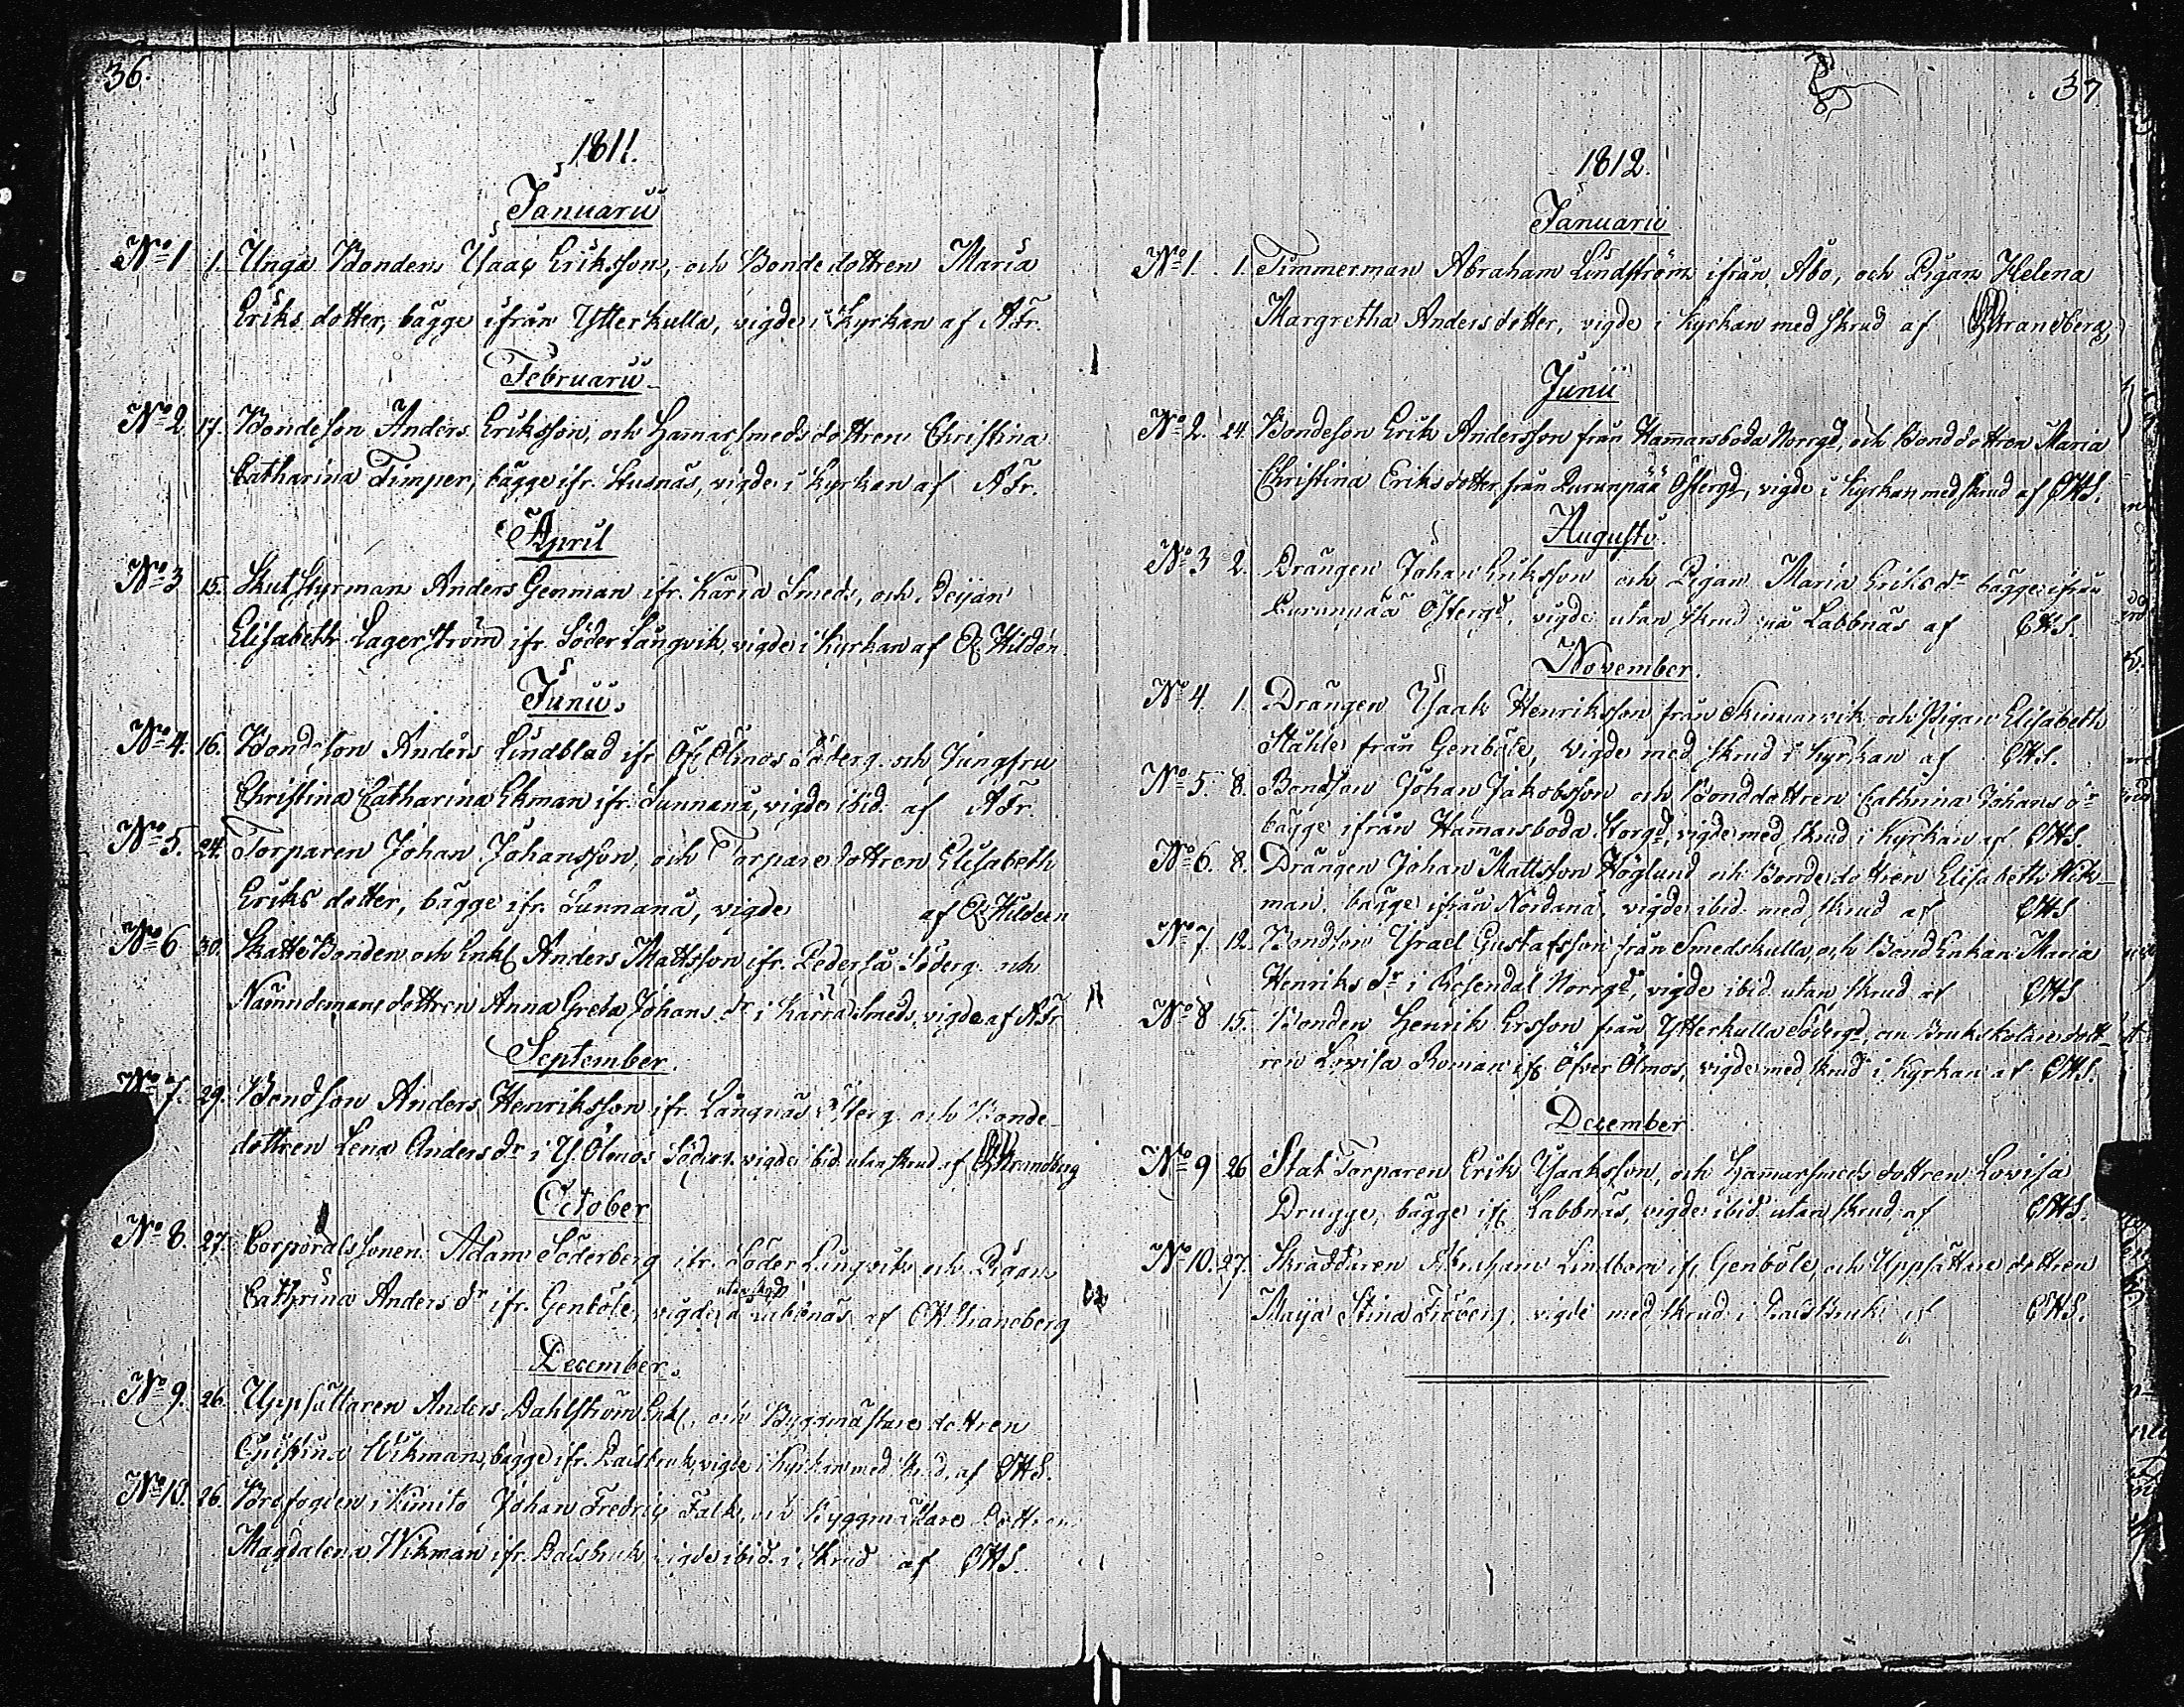 36.
1811.
Januarii
No 1 1. Unga Bonden Isaac Eriksson, och Bondedottren Maria
Eriks dotter, bägge ifrån Ytterkulla, vigde i Kyrkan af AFr.
Februarii
No 2. 17. Bondeson Anders Eriksson, och Hamarsmedsdottren Christina
Catharina Timper, bägge ifr. Husnäs, vigde i Kyrkan af AFr.
April
No 3 15. Skutstyrman Anders Genman ifr. Kärra Smeds, och Peijan
Elisabeth Lagerström ifr. Söder Långvik, vigde i Kyrkan af Hildén
Junii.
No 4. 16. Bondeson Anders Lindblad ifr. Öf. Ölmos Söderg. och Jungfru
Christina Catharina Ekman ifr. Sunnanå, vigde ibid. af AFr.
No 5. 24. Torparen Johan Johansson, och Torparedottren Elisabeth
Eriks dotter, bägge ifr. Sunnanå, vigde af Hildeen
No 6 30. Skatte Bonden och Enkl. Anders Mattsson ifr. Pederså Söderg. och
Nämndemans dottren Anna Greta Johans dr i Kärra Smeds, vigde af AFr
September.
No 7. 29. Bondson Anders Henriksson ifr. Långnäs Österg. och Bonde-
dottren Lena Anders dr i Y. Ölmos Söderg. vigde ibid. utan skrud af Strandberg
October
No 8. 27. Corporalssonen Adam Söderberg ifr. Söder Långvik och Pigan
Cathrina Anders dr ifr. Genböle, vigde å Labbnäs af CHStrandberg
utan skrd
December.
No 9. 26. Uppsättaren Anders Dahlström Enkl. och Byggmästaredottren
Christina Wikman, bägge ifr. Dalsbruk, vigde i Kyrkan med skrud, af CHS.
No 10. 26. Brofogden i Kimito Johan Fredric Falk, och Byggmästare Dottren
Magdalena Wikman ifr. Dalsbruk vigde ibid. i skrud af CHS.
37
1812.
Januarii
No 1. 1. Timmerman Abraham Lindström ifrån Åbo, och Pigan Helena
Margretha Andersdotter, vigde i Kyrkan med skrud af Strandberg
Junii
No 2. 24. Bondeson Erik Andersson från Hamarsboda Norrgd, och Bonddottren Maria
Christina Eriksdotter från Purunpää Östergd, vigde i Kyrkan med skrud af CHS.
Augusti
No 3 2. Drängen Johan Eriksson och Pigan Maria Eriksdr bägge ifrån
Purunpää Östergd, vigde utan skrud på Labbnäs af CHS.
November.
No 4. 1. Drängen Isaak Henriksson från Skinnarvik och Pigan Elisabeth
Ståhle från Genböle, vigde med skrud i Kyrkan af CHS.
No 5. 8. Bondson Johan Jakobsson och Bonddottren Cathrina Johans dr
bägge ifrån Hamarsboda Storgd, vigde med skrud i Kyrkan af CHS.
No 6. 8. Drängen Johan Mattsson Höglund och Bondedottren Elisabeth Wik-
man, bägge ifrån Nordanå, vigde ibid. med skrud af CHS
No 7. 12. Bondson Israel Gustafsson från Smedskulla, och Bond Enkan Maria
Henriks dr i Rosendal Norrgd, vigde ibid utan skrud af CHS
No 8 15. Bonden Henrik Ersson från Ytterkulla Södergd, och Brukskolaredott-
ren Lovisa Roman ifr Öfver Ölmos, vigde med skrud i Kyrkan af CHS.
December
No 9 26 Stat Torparen Erik Isaaksson, och Hamarsmedsdottren Lovisa
Drugge, bägge ifr. Labbnäs, vigde ibid. utan skrud af CHS.
No 10. 27. Skräddaren Abraham Lindbom ifr. Genböle, och Uppsättare dottren
Maija Stina Fröberg, vigde med skrud i Dalsbruk af CHS.